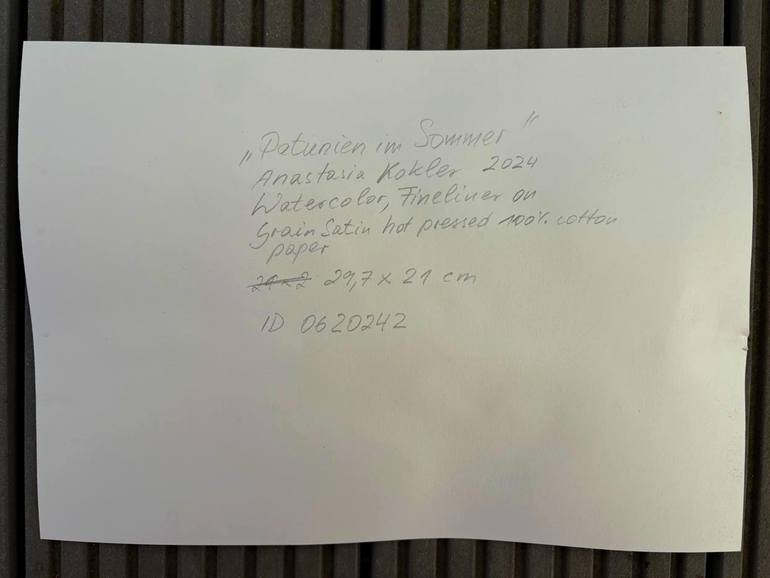 „Patunien im Sommer"
Anastasia Kokler 2024
Watercolor, Fineliner on
Grain Satin hot pressed 100% cotton
paper
29,7 x 21 cm
ID 0620242